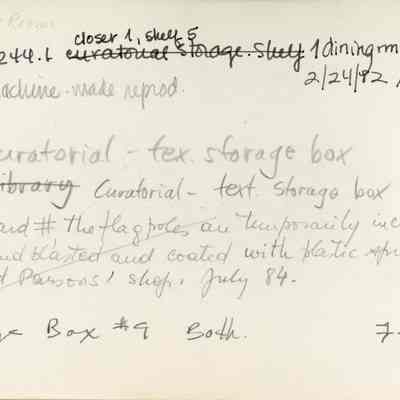 closet 1, shelf 5
244.1 curatorial storage. Shelf 1 diningrm
2/24/92
machine-made reprod.
curatorial - tex. storage box
library Curatorial - text. Storage box
and # The flagpoles are temporarily inc
and blasted and coated with plastic
Parsons' shop, July 84.
Box #9 Both. 7-